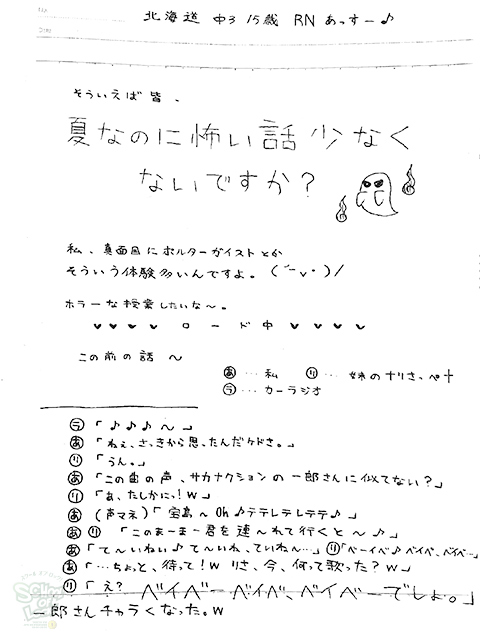 北海道 中3 15歳 RN あっすー♪
そういえば皆、
夏なのに怖い話少なく
ないですか？
私、真面目にポルターガイストとか
そういう体験多いんですよ。(´-v・)/
ホラーな授業したいな〜。
♥ ♥ ♥ ♥ ロ ー ド 中 ♥ ♥ ♥ ♥
この前の話 〜
あ … 私 り … 妹のナリさっぺ十
ラ … カーラジオ
ラ「♪♪♪〜」
あ「ねぇ、さっきから思ったんだケドさ。」
り「うん。」
あ「この曲の声、サカナクションの一郎さんに似てない？」
り「あ、たしかにっ！w」
あ（声マネ）「宝島〜Oh♪テテレテレテテ♪」
あ り「このまーまー君を連〜れて行くと〜♪」
あ「て〜いねい♪て〜いね、ていねん…」り「ベーイベ♪ベイベ、ベイベ…
あ「…ちょっと、待って！w りさ、今、何って歌った？w」
り「え？ ベイベーベイベ、ベイベーでしょ。」
一郎さんチャラくなった。w